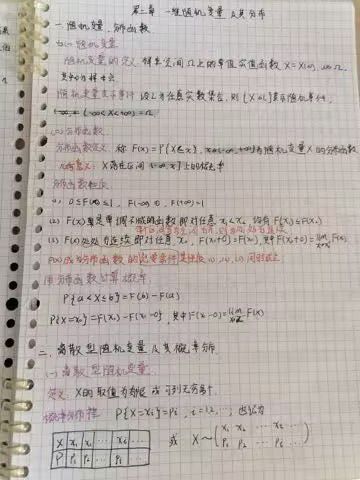 第二章 一维随机变量及其分布
一、随机变量、分布函数
(一) 随机变量
随机变量的定义 样本空间Ω上的单值实值函数 X=X(ω), ω∈Ω,
随机变量表示事件 设L为任意实数集合, 则{X∈L}表示随机事件,
(二) 分布函数
分布函数定义 称 F(x)=P{X≤x}, 为随机变量X的分布函数
几何意义: X落在区间(-∞,x]上的概率
分布函数性质
(1) 0≤F(x)≤1, F(-∞)=0, F(+∞)=1
(2) F(x)是单调不减的函数 即对任意 x₁<x₂ 均有 F(x₁)≤F(x₂)
(3) F(x)处处右连续 即对任意 x₀, F(x₀+0)=F(x₀), 其中 F(x₀+0)=lim F(x)
F(x)成为分布函数的充要条件是性质 (1), (2), (3) 同时成立
用分布函数计算概率
P{a<X≤b}=F(b)-F(a)
P{X=x₀}=F(x₀)-F(x₀-0), 其中F(x₀-0)=lim F(x)
二、离散型随机变量及其概率分布
(一) 离散型随机变量
定义: X的取值为有限或可列无穷多个.
概率分布律 P{X=xᵢ}=pᵢ, i=1,2,…, 也记为
X x₁ x₂ … xᵢ … 或 X~(x₁ x₂ … xᵢ …
P p₁ p₂ … pᵢ … p₁ p₂ … pᵢ …)